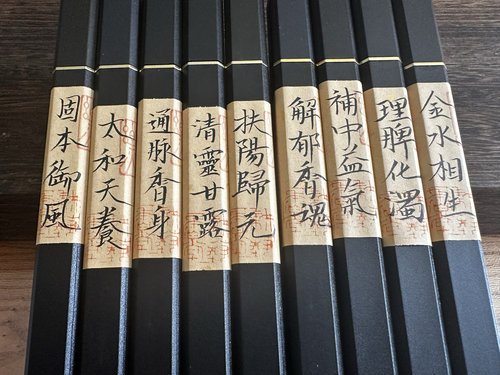 固本御風
太和天養
通脈香身
清靈甘露
扶陽歸元
解郁香魂
補中益氣
理脾化濁
金水相生